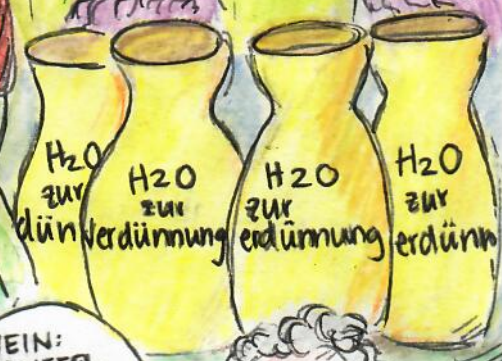 H2O
zur
dün
H2O
zur
Verdünnung
H2O
zur
erdünnung
H2O
zur
erdünn
EIN: